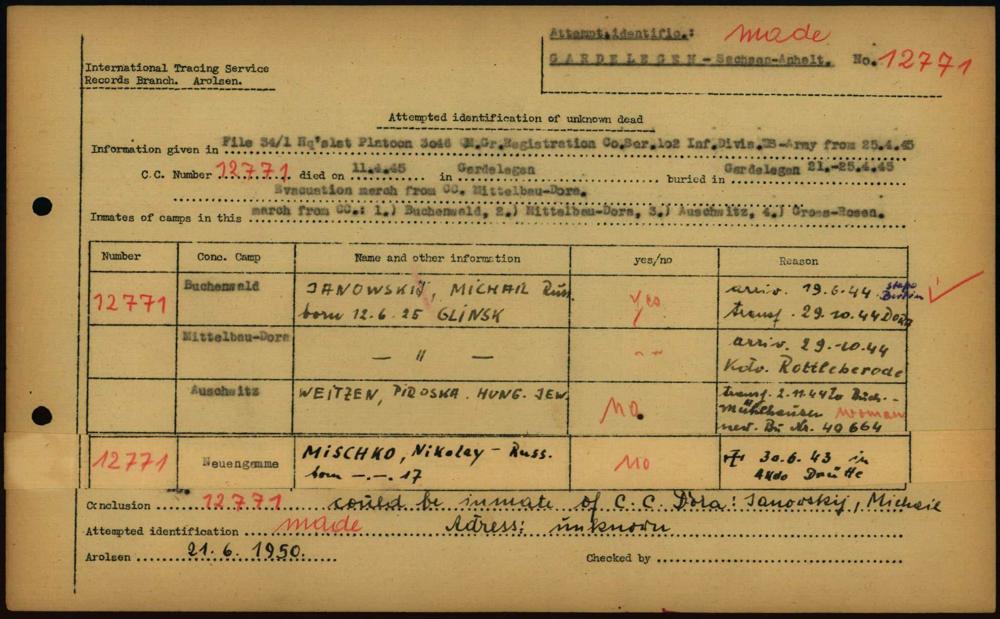 Attempt.identific.: made
International Tracing Service
Records Branch. Arolsen.
GARDELEGEN - Sachsen-Anhalt. No. 12771
Attempted identification of unknown dead
Information given in File 34/1 Hq's1st Platoon 3046 QM.Gr.Registration Co.Ser.102 Inf.Divis.US-Army from 25.4.45
C.C. Number 12771 died on 11.4.45 in Gardelegen buried in Gardelegen 21.-25.4.45
Evacuation march from CC. Mittelbau-Dora.
Inmates of camps in this march from CC.: 1.) Buchenwald, 2.) Mittelbau-Dora, 3.) Auschwitz, 4.) Gross-Rosen.
Number Conc. Camp Name and other information yes/no Reason
12771 Buchenwald JANOWSKIJ, MICHAIL Russ. yes arriv. 19.6.44 stapo
born 12.6.25 GLINSK transf. 29.10.44 Dora
Mittelbau-Dora — " — arriv. 29.10.44
Kdo. Rottleberode
Auschwitz WEITZEN, PIROSKA. HUNG. JEW. no. transf. 2.11.44 to Buch.-
Mühlhausen woman
new. Bu Nr. 40664
12771 Neuengamme MISCHKO, Nikolay - Russ. no 30.6.43 in
born -.-. 17 Kdo Drütte
Conclusion No. 12771 could be inmate of C.C. Dora: Janovskij, Michail
Attempted identification made Adress: unknown
Arolsen 21.6.1950. Checked by